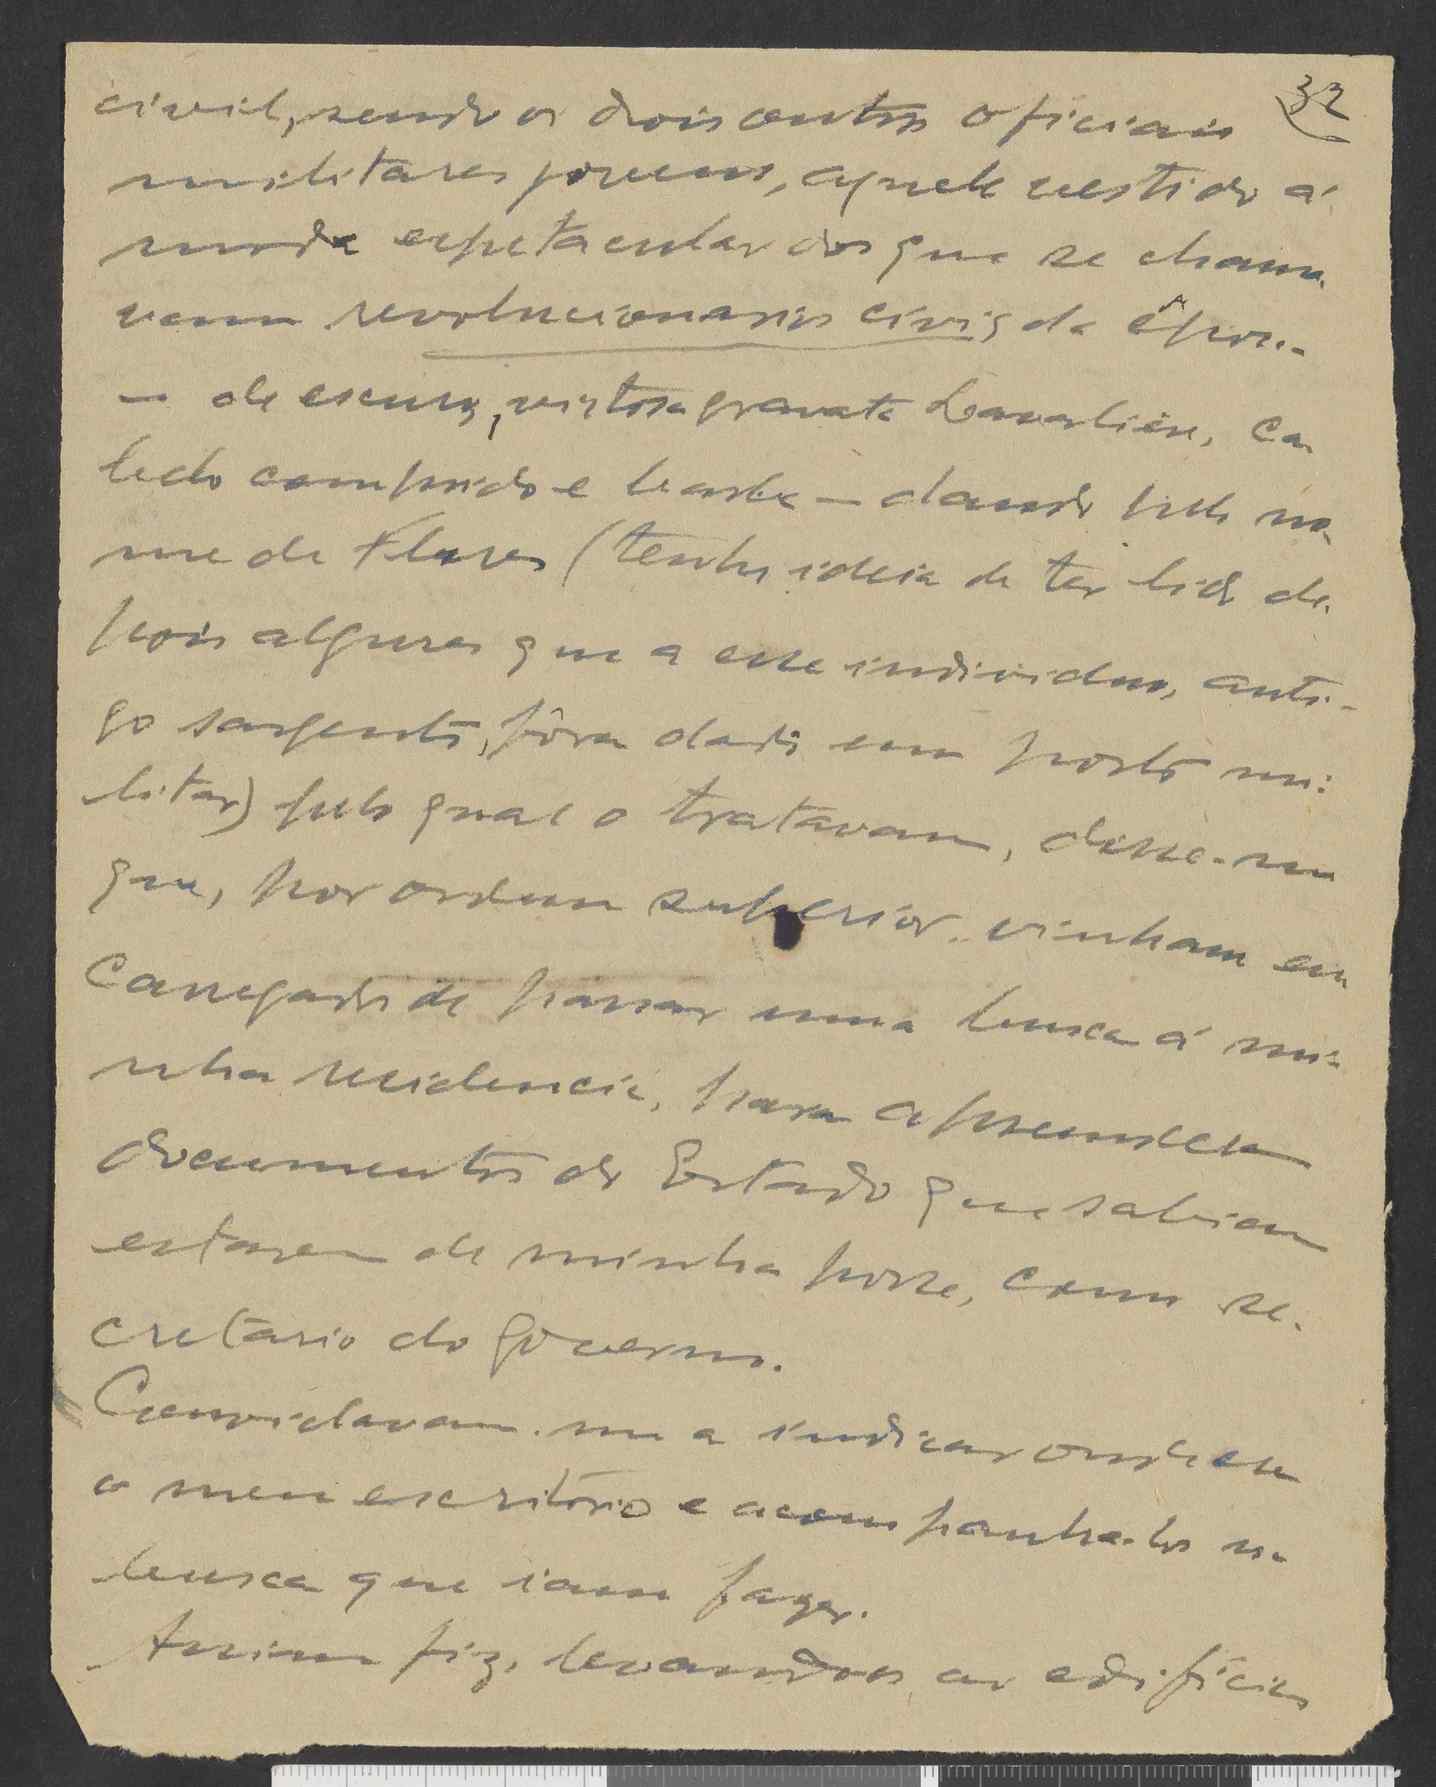 32
civil, sendo os dois outros oficiais
militares jovens, aquele vestido á
moda espetacular dos que se chama-
vam revolucionarios civis da época
— de escuro, vistosa gravata Lavalière, ca-
belo comprido e barba — dando pelo no-
me de Flores (tenho ideia de ter lido de-
pois algures que a esse individuo, anti-
go sargento, fôra dado um posto mi-
litar) pelo qual o tratavam, disse-me
que, por ordem superior, vinham en-
carregados de passar uma busca á mi-
nha residencia, para apreenderem
documentos do Estado que sabiam
estarem de minha posse, como se-
cretario do governo.
Convidavam-me a indicar onde era
o meu escritório e acompanha-los na
busca que iam fazer.
Assim fiz, levando-os ao edifício